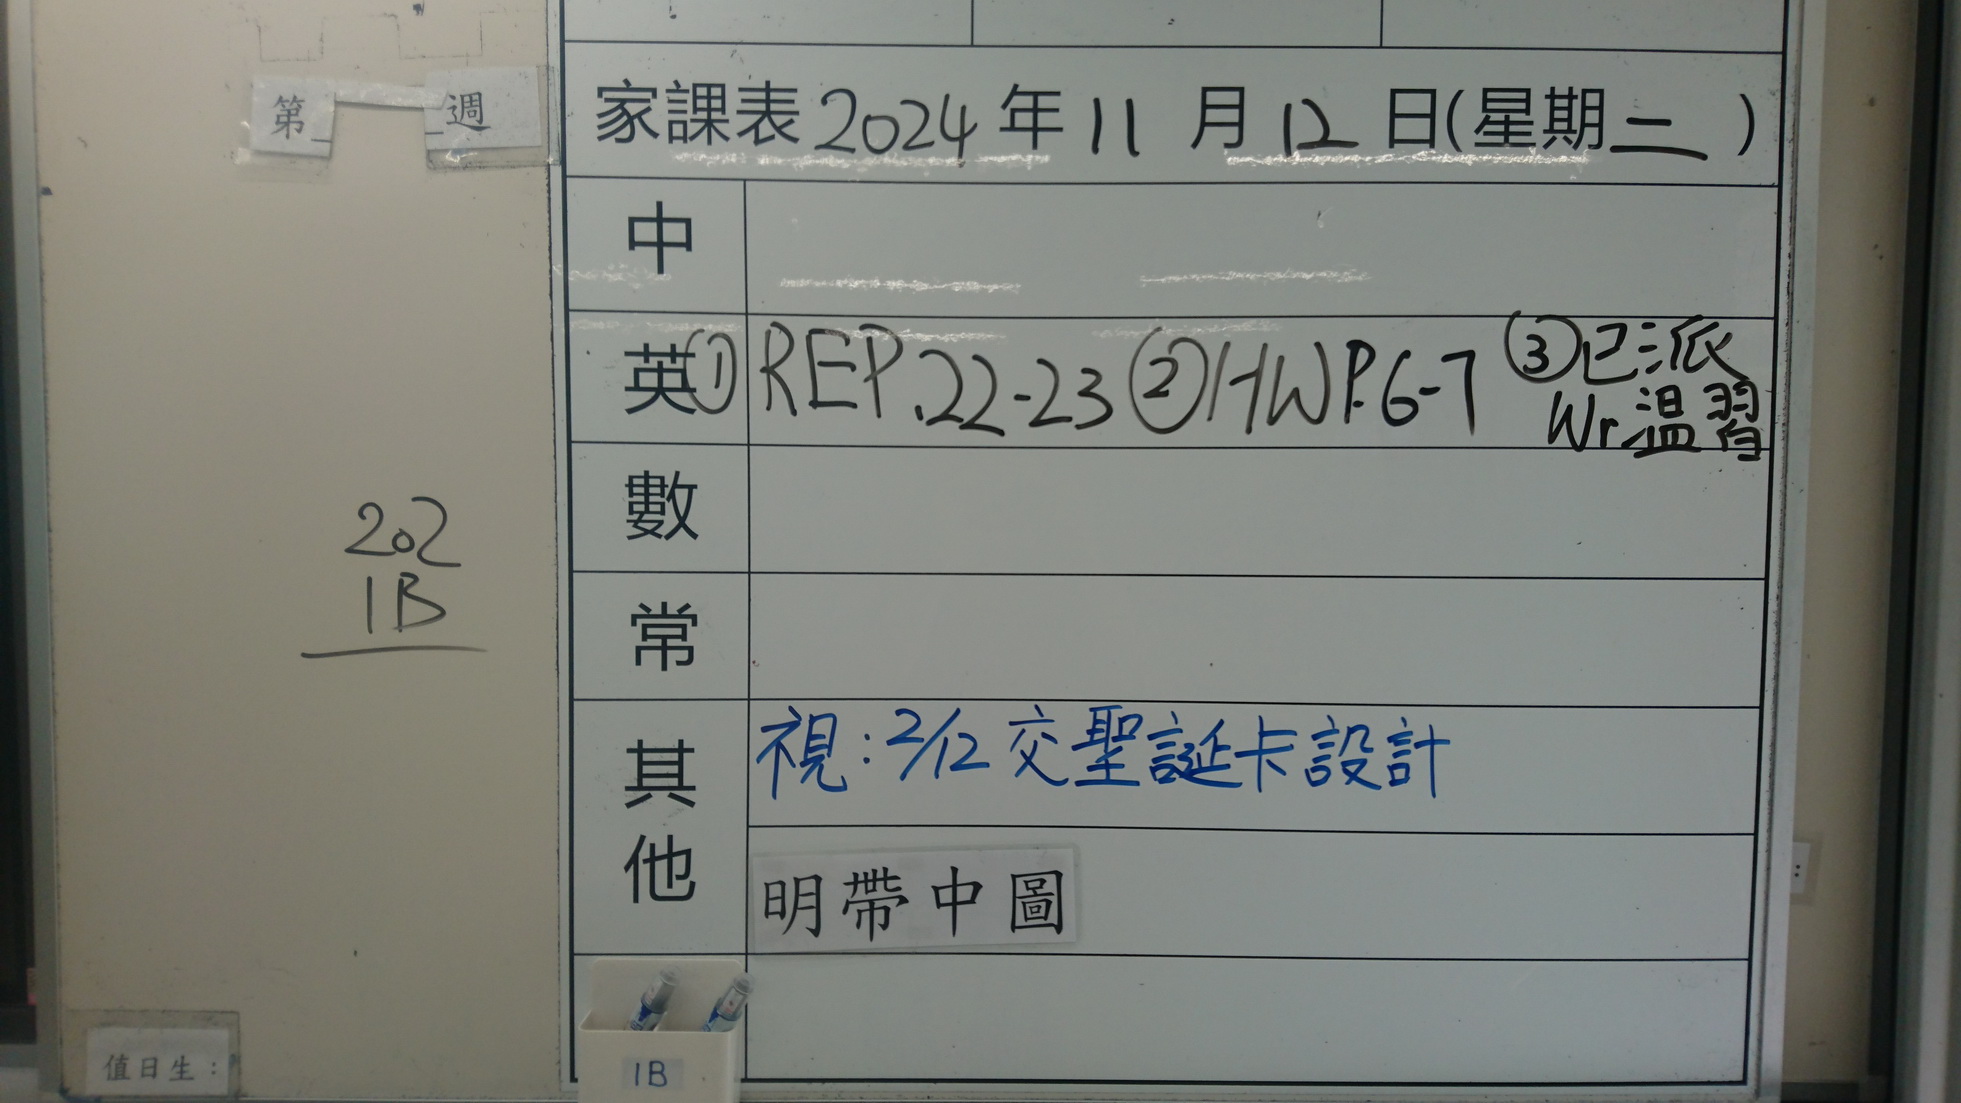 第_ _週
家課表 2024 年 11 月 12 日(星期二)
中
英 ① REP.22-23 ② HW P.6-7 ③ 已派
Wr. 温習
數
常
202
1B
其他
視：2/12 交聖誕卡設計
明帶中圖
值日生：
1B